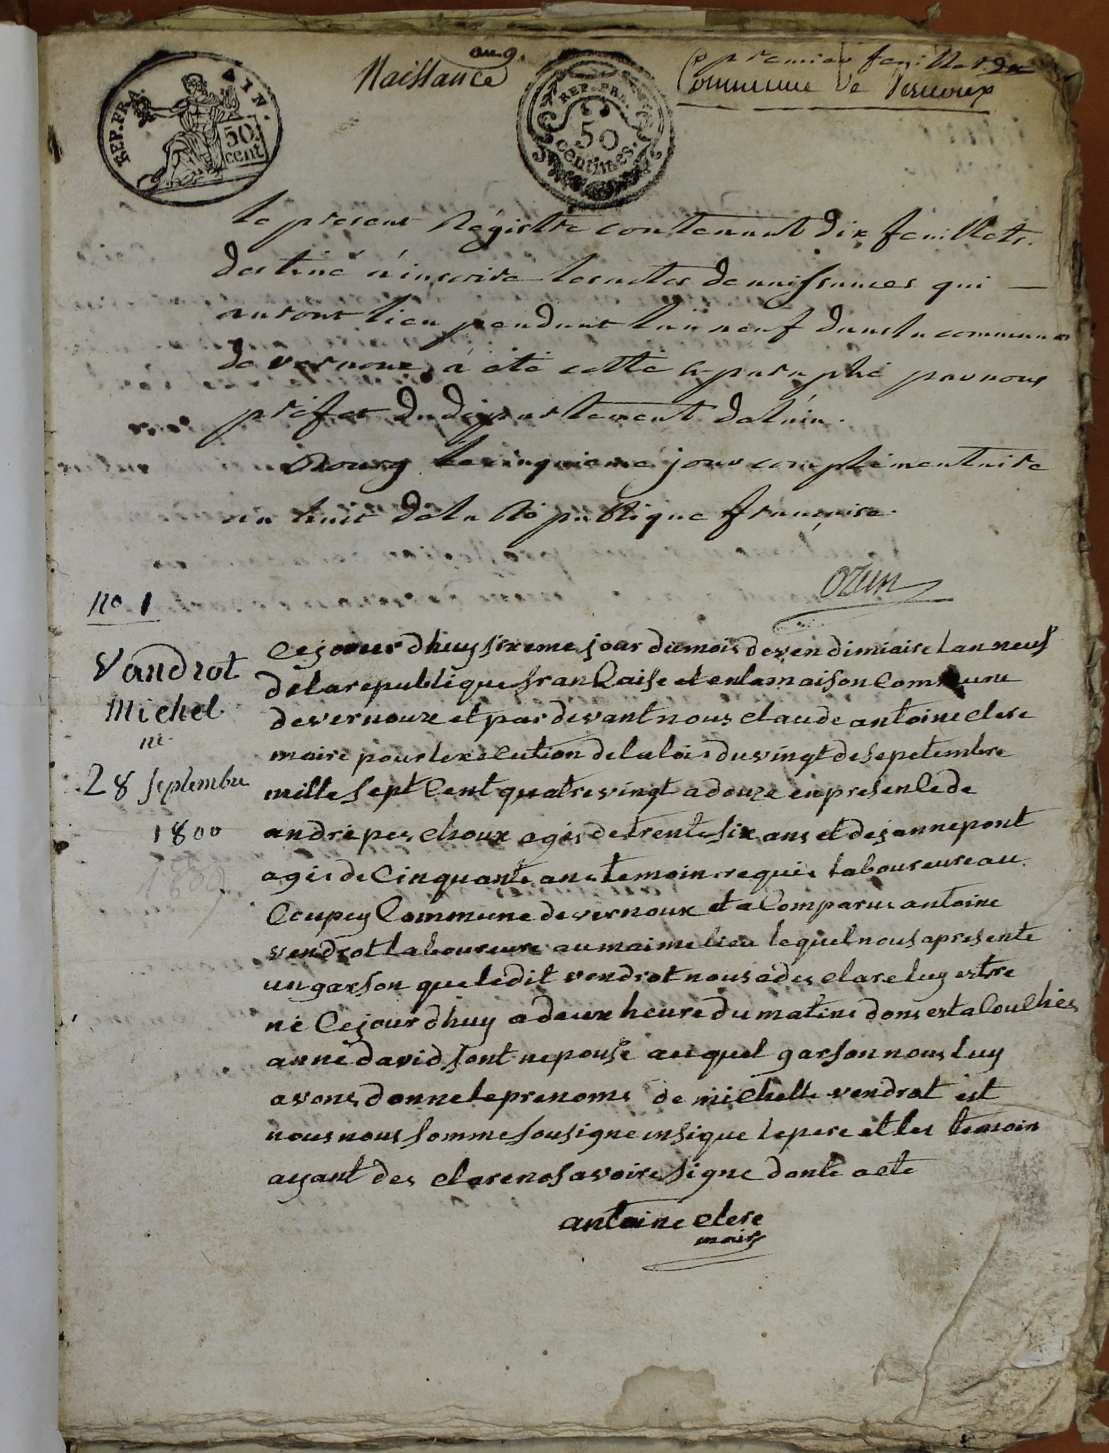 an 9.
Naissance
premier feuillet
Commune de Vernoux
REP. FRA. AIN.
50 cent
REP. FRA.
50
centimes.
le present Régistre contenant dix feuillets.
destiné a inscrire les actes de naissances qui
auront lieu pendant l'an neuf dans la commune
de vernoux, à été cotté & paraphé par nous
préfet du département de l'ain.
Bourg le cinquieme jour complémentaire
an huit de la République française.
ozun
No 1
Vandrot
Michel
né
28 Septembre
1800
Ce jour dhuy sixeme jour du mois de vendimiaire l an neuf
de la republique franCaise et en la maison Commune
de vernoux et par devant nous claude antoine clere
maire pour lexeCution de la loi du vingt de Sepetembre
mille Sept Cent quatre vingt a douze en presenCe de
andré pes choux agés de trente Six ans et de janne pont
agés de Cinquante ans temoin requis laboureure au
Ocupey Commune de vernoux et a Comparus antoine
vendrot laboureure au maime lieu lequel nous a presente
un garson que le dit vendrot nous a des clare luy estre
né Ce jour dhuy a deux heure du matine dons est a CouChés
anne david sont nepouse auquel garson nous luy
avons donne le prenoms de miChelle vendrot est
nous nous somme sousigne insique le pere et les temoin
ayant des clare no savoire signe donte acte
antoine clere
maire